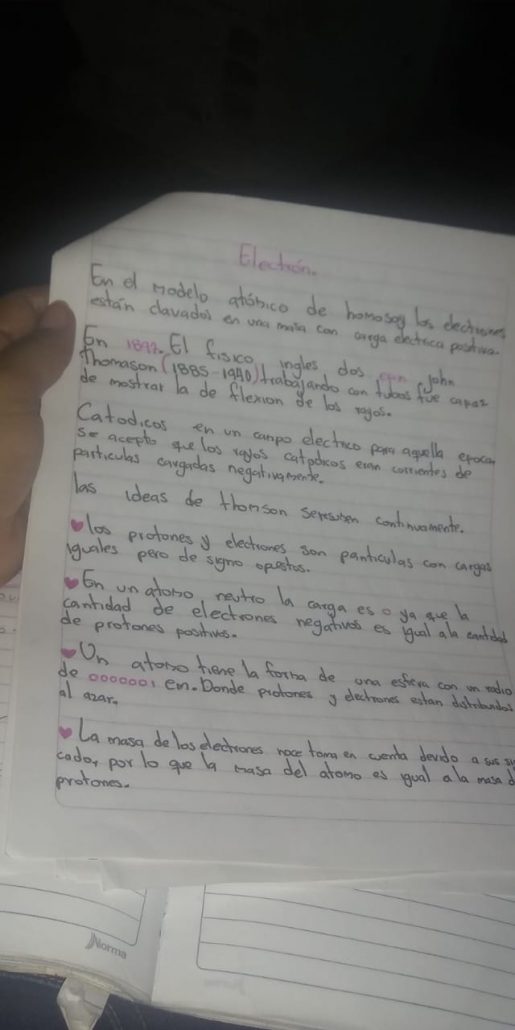 Electrón.
En el modelo atómico de homosog los electrones
están clavados en una masa con carga electrica positiva.
En 1897. El fisico ingles dos con John
Thomason (1885-1940) trabajando con tubos fue capaz
de mostrar la de flexion de los rayos.
Catodicos en un campo electrico para aquella epoca,
se acepto que los rayos catodicos eran corrientes de
particulas cargadas negativamente.
las ideas de thomson seresuben continuamente.
los protones y electrones son particulas con cargas
iguales pero de signo opestos.
En un atomo neutro la carga es o ya que la
cantidad de electrones negativos es igual ala cantidad
de protones positivos.
Un atomo tiene la forma de una esfera con un radio
de 0000001 em. Donde protones y electrones estan distribuidos
al azar.
La masa de los electrones noce toma en cuenta devido a sus
cado, por lo que la masa del atomo es igual a la masa d
protones.
Norma